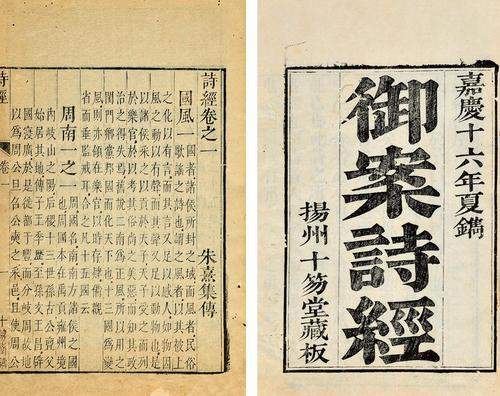 嘉慶十六年夏鐫
御案詩經
揚州十笏堂藏板
詩經卷之一 朱熹集傳
國風一
國者諸侯所封之域而風者民俗
歌謠之詩也謂之風者以其被上
之化以有言而其言又足以感人如物因
風之動以有聲而其聲又足以動物也是
以諸侯采之以貢於天子天子受之而列
於樂官於以考其俗尚之美惡而知其政
治之得失焉舊說二南為正風所以用之
閨門鄉黨邦國而化天下也十三國為變
風則亦領在樂官以時存肄備觀
省而垂監戒耳合之凡十五國云
周南一之一
周國名南南方諸侯之國
也周國本在禹貢雍州境
內岐山之陽后稷十三世孫古公亶父
始居其地傳子王季歷至孫文王昌辟
國寖廣於是徙都于豐而分岐周故地
以為周公旦召公奭之采邑且使周公
詩經
卷一